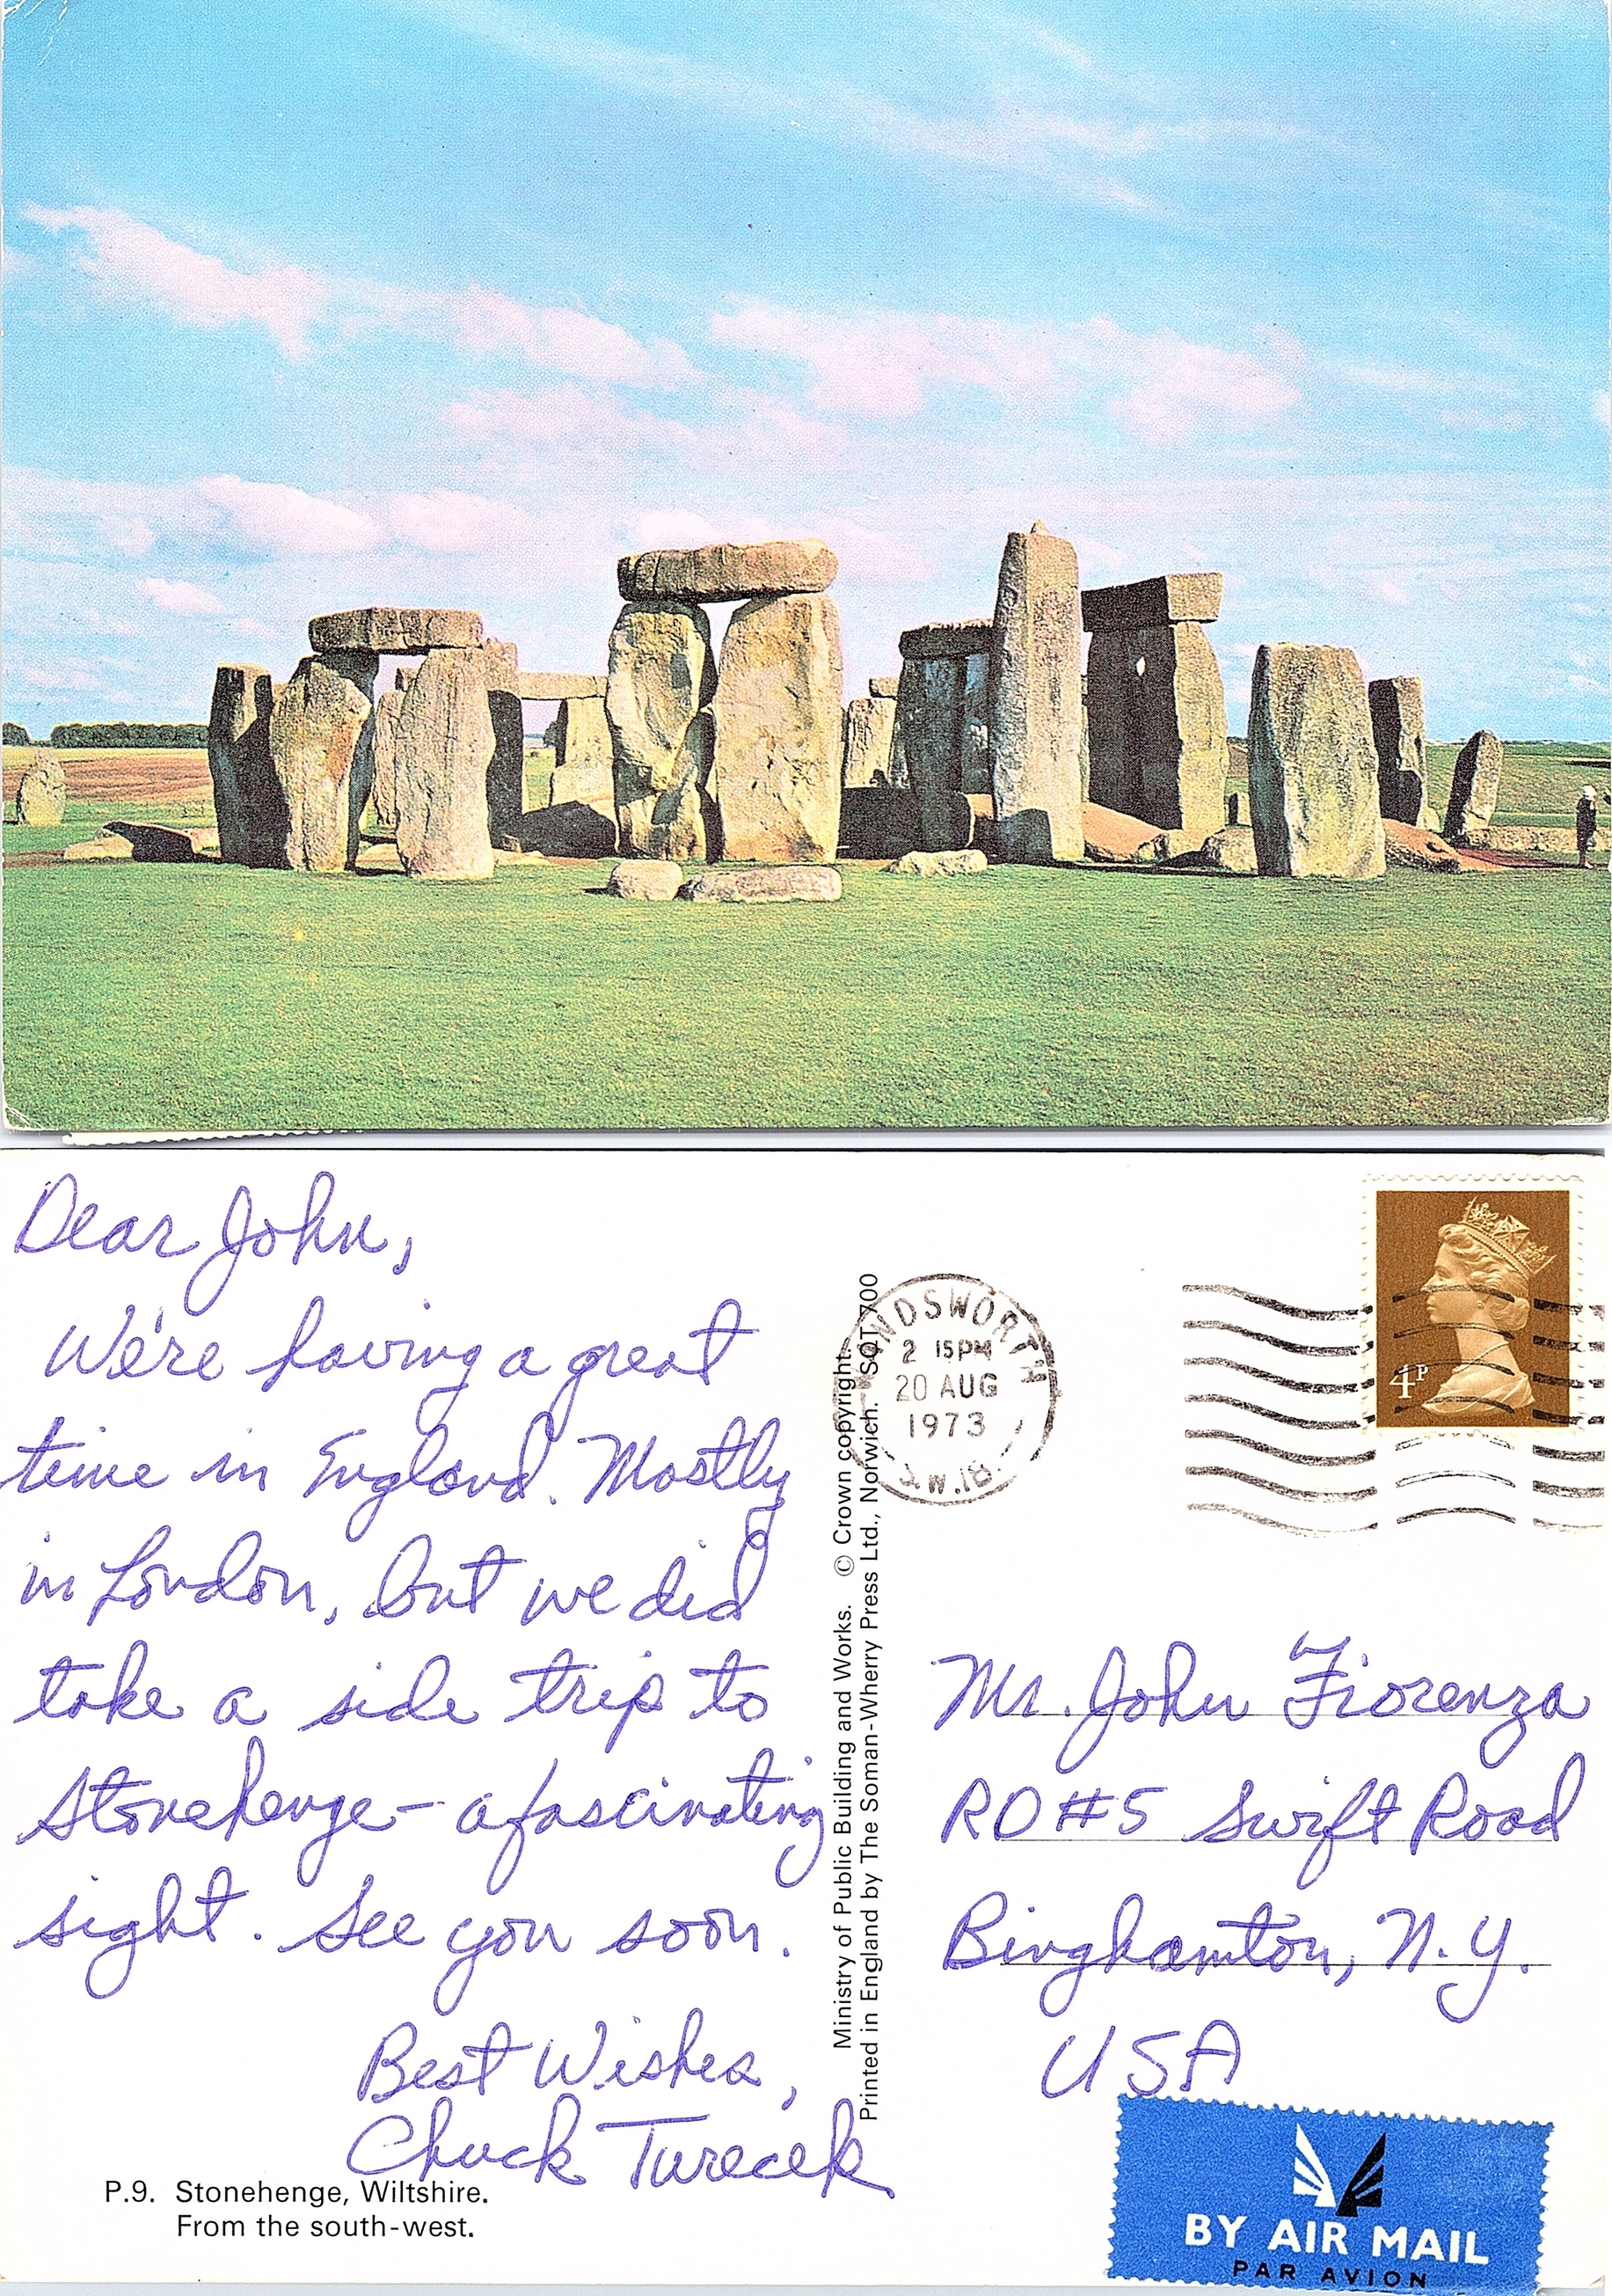 Dear John,
We're having a great
time in England. Mostly
in London, but we did
take a side trip to
Stonehenge – a fascinating
sight. See you soon.
Best Wishes,
Chuck Turecek
P.9. Stonehenge, Wiltshire.
From the south-west.
Ministry of Public Building and Works. © Crown copyright.
Printed in England by The Soman-Wherry Press Ltd., Norwich. SQT 700
NDSWORTH
2 15PM
20 AUG
1973
S.W.18.
4P
Mr. John Fiorenza
RD #5 Swift Road
Binghamton, N.Y.
USA
BY AIR MAIL
PAR AVION